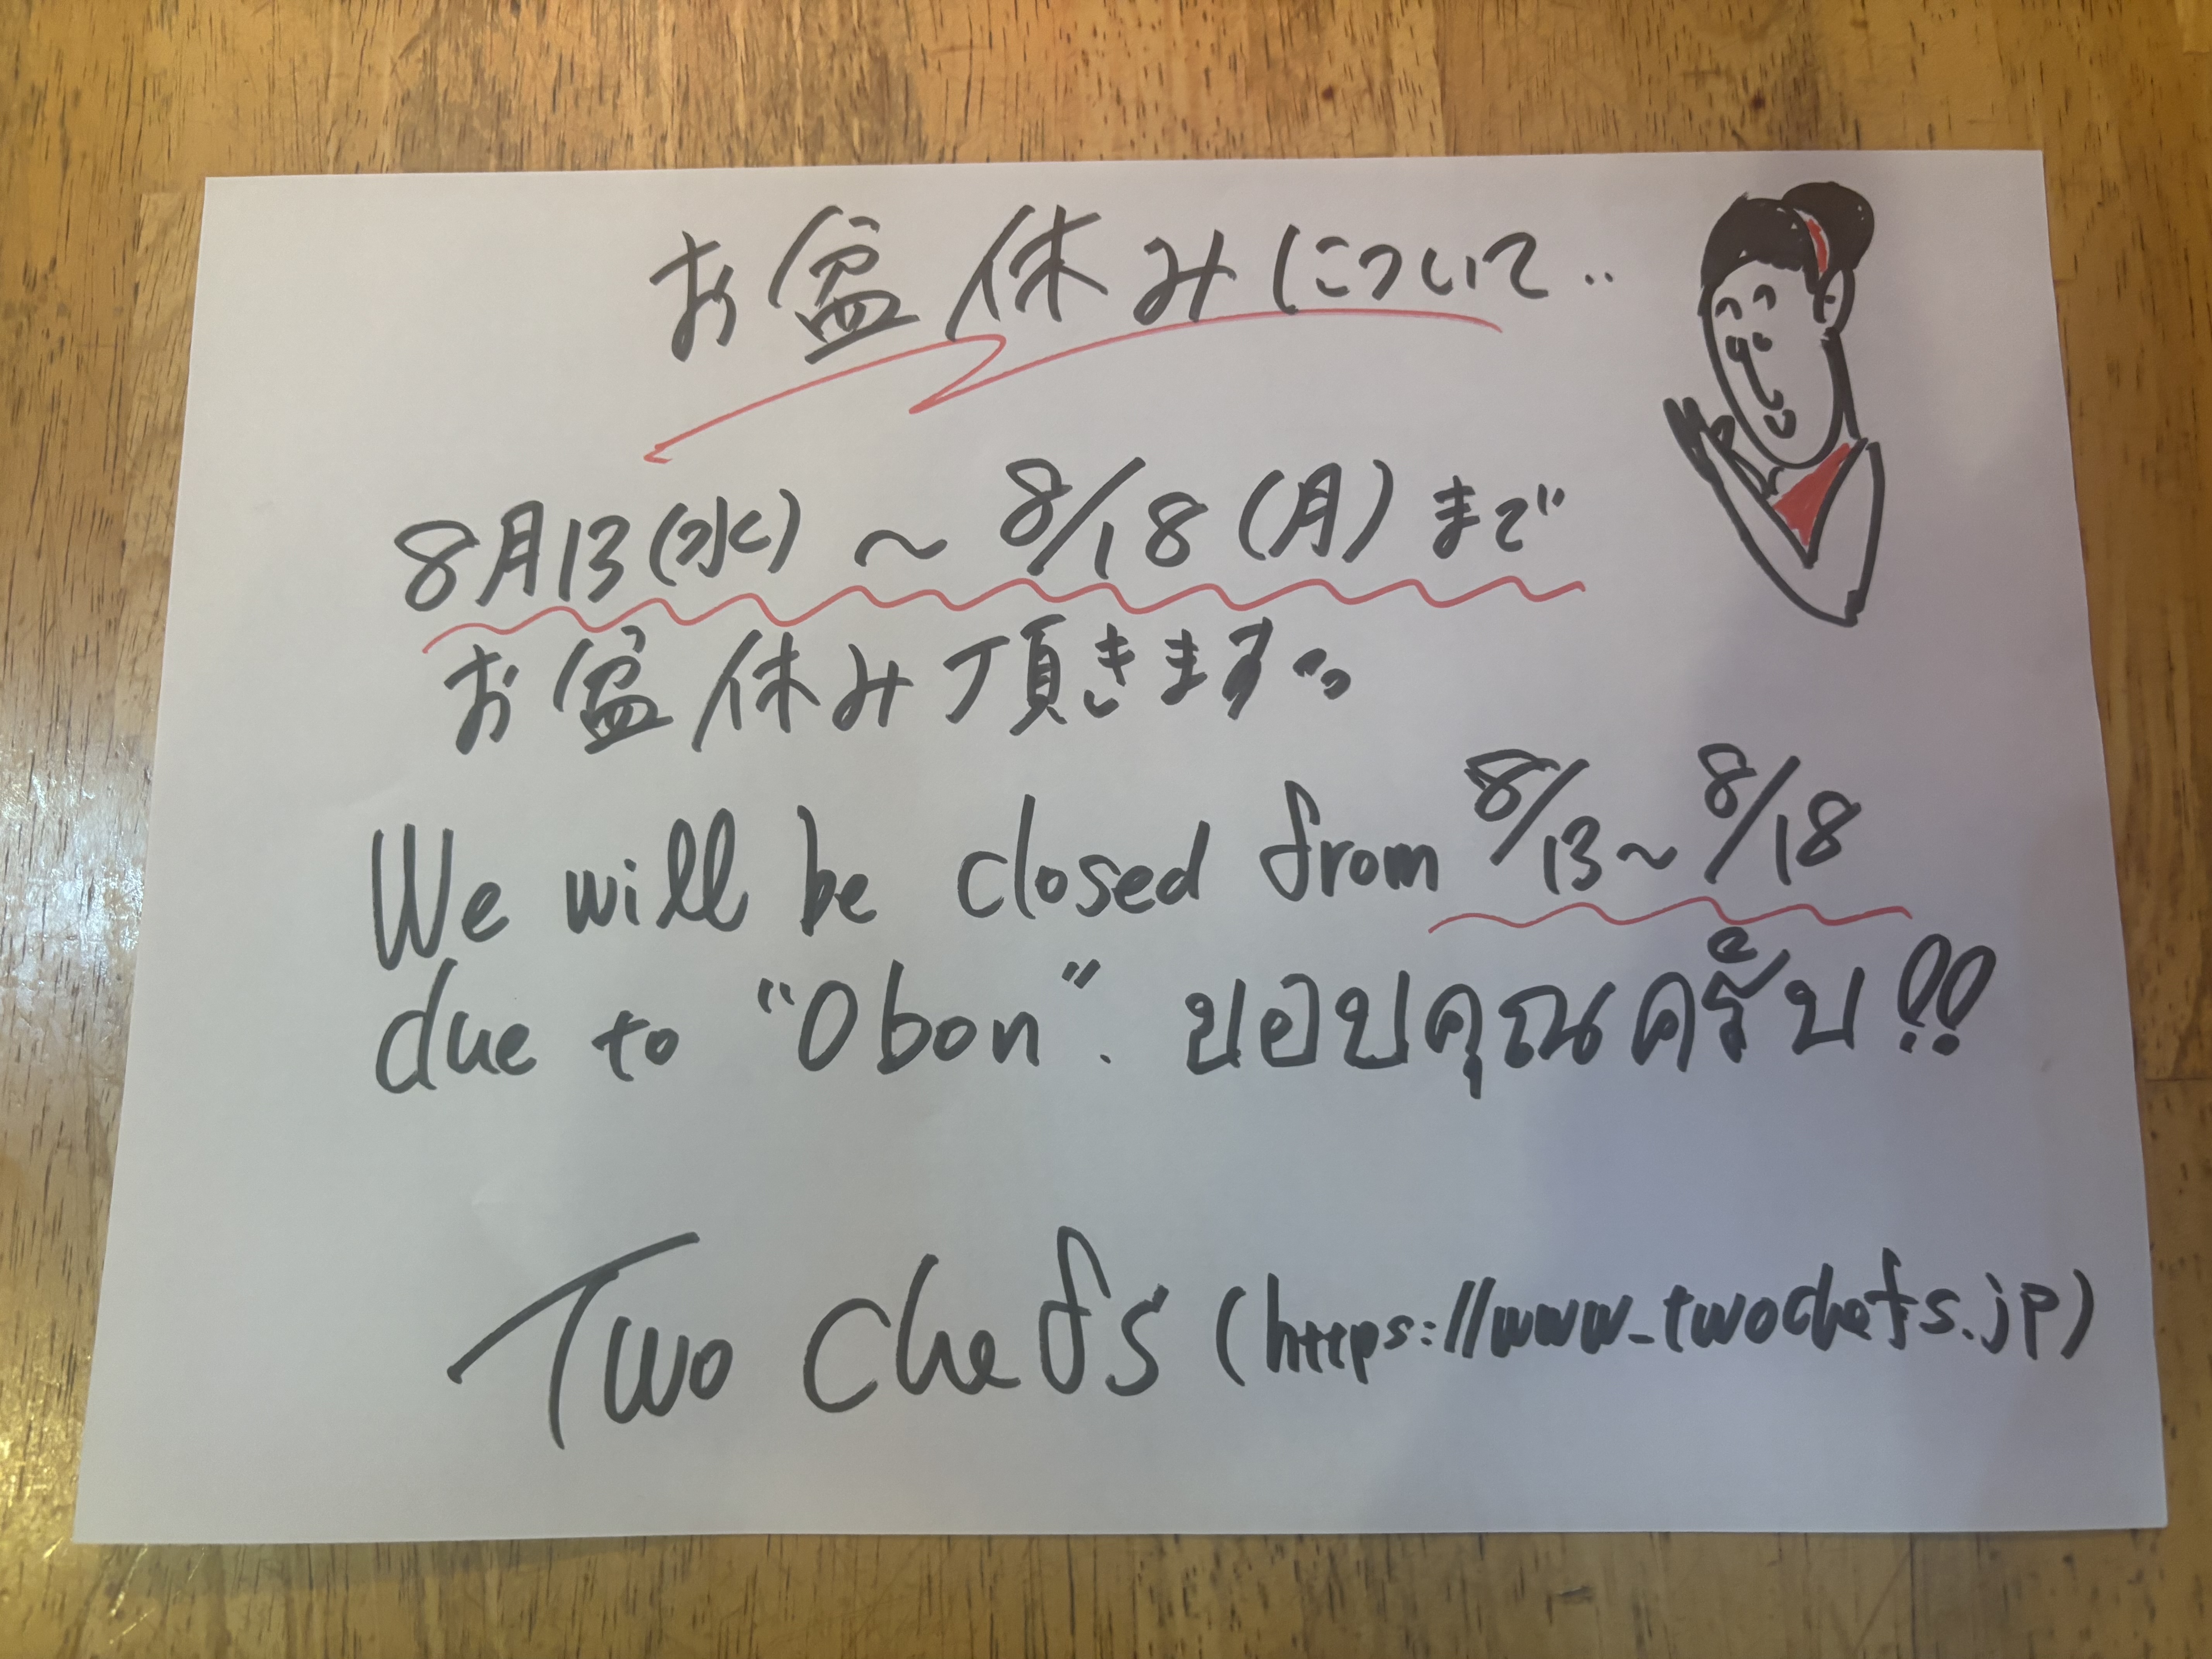 お盆休みについて..
8月13(水)～8/18(月)まで
お盆休み頂きます。
We will be closed from 8/13～8/18
due to "Obon". ขอบคุณครับ!!
Two Chefs (https://www.twochefs.jp)